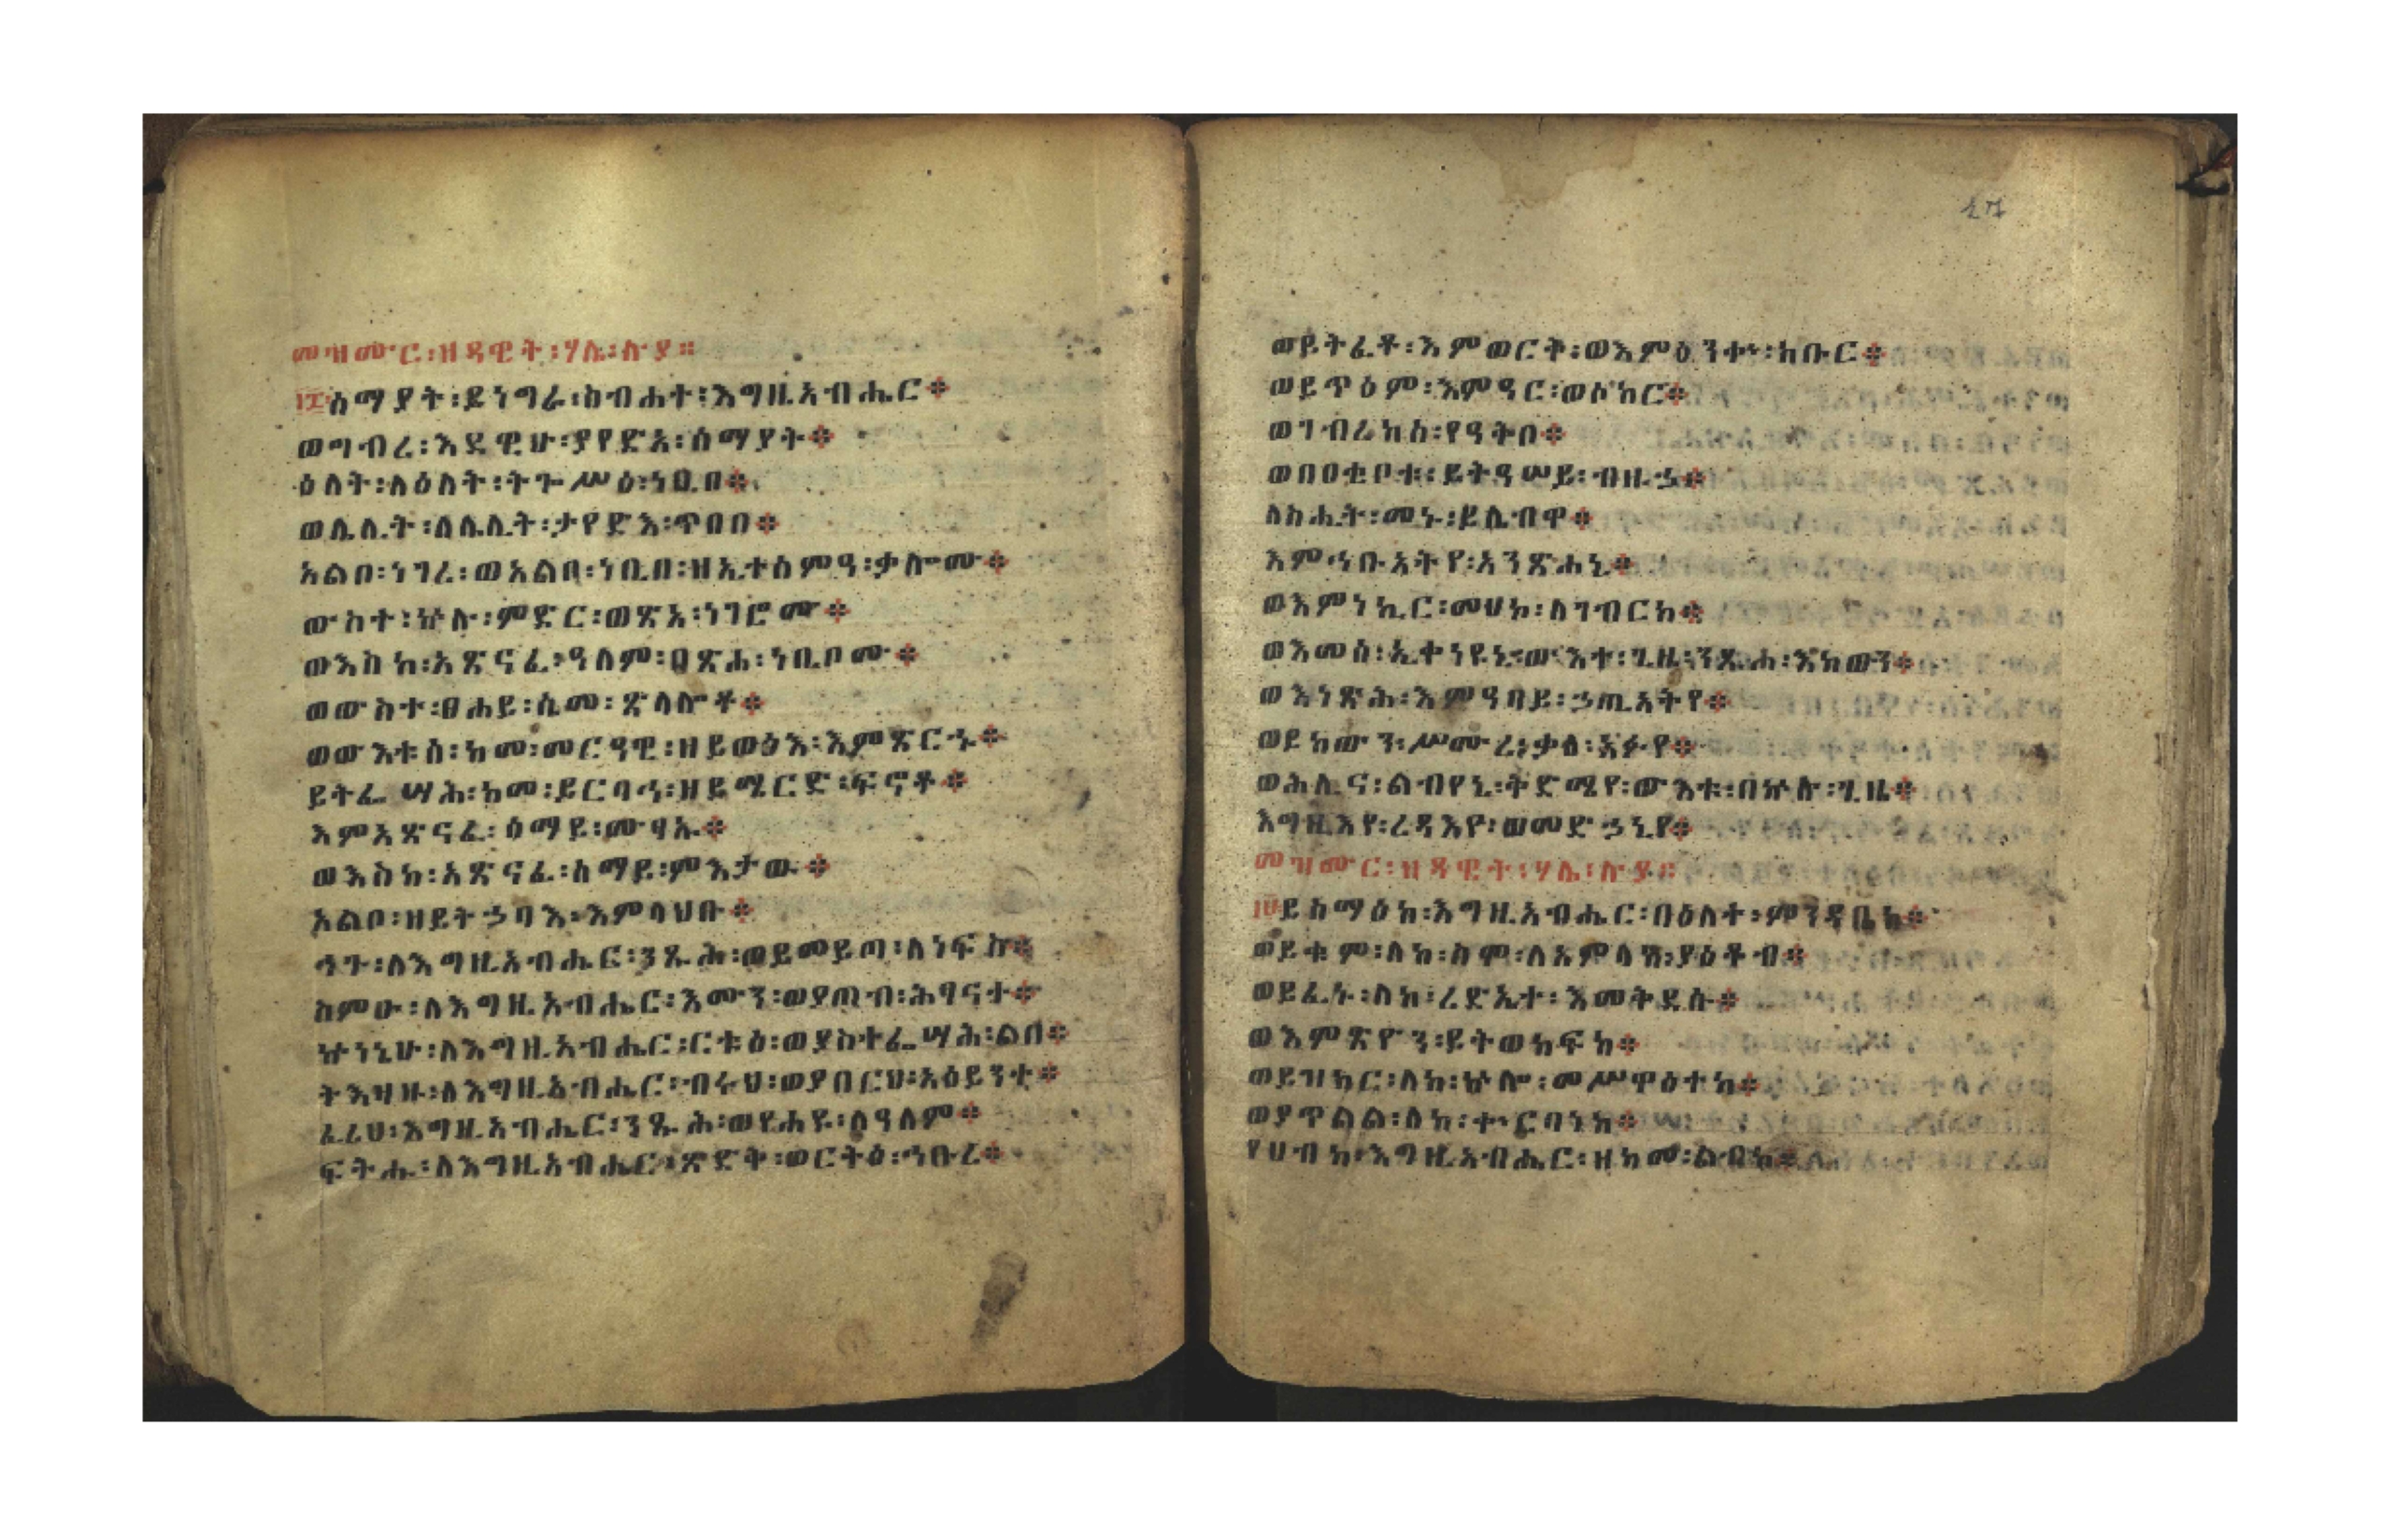 መዝሙር፡ዘዳዊት፡ሃሌ፡ሉያ።
፲፰ሰማያት፡ይነግራ፡ስብሐተ፡እግዚአብሔር።
ወግብረ፡እደዊሁ፡ያየድአ፡ሰማያት።
ዕለት፡ለዕለት፡ትጐሥዕ፡ነቢበ።
ወሌሊት፡ለሌሊት፡ታየድእ፡ጥበበ።
አልቦ፡ነገረ፡ወአልቦ፡ነቢበ፡ዘኢተሰምዓ፡ቃሎሙ።
ውስተ፡ኵሉ፡ምድር፡ወጽአ፡ነገሮሙ።
ወእስከ፡አጽናፈ፡ዓለም፡በጽሐ፡ነቢቦሙ።
ወውስተ፡ፀሐይ፡ሴመ፡ጽላሎቶ።
ወውእቱሰ፡ከመ፡መርዓዊ፡ዘይወፅእ፡እምጽርኁ።
ይትፌሣሕ፡ከመ፡ይርባሕ፡ዘይሜርድ፡ፍኖቶ።
እምአጽናፈ፡ሰማይ፡ሙፃኡ።
ወእስከ፡አጽናፈ፡ሰማይ፡ምእታው።
አልቦ፡ዘይትኃባእ፡እምላህቡ።
ሕጉ፡ለእግዚአብሔር፡ንጹሕ፡ወይመይጣ፡ለነፍስ።
ስምዑ፡ለእግዚአብሔር፡እሙን፡ወያጠብ፡ሕፃናተ።
ኵነኔሁ፡ለእግዚአብሔር፡ርቱዕ፡ወያስተፌሣሕ፡ልበ።
ትእዛዙ፡ለእግዚአብሔር፡ብሩህ፡ወያበርህ፡አዕይንተ።
ፈሪሀ፡እግዚአብሔር፡ንጹሕ፡ወየሐዩ፡ለዓለም።
ፍትሑ፡ለእግዚአብሔር፡ጽድቅ፡ወርትዕ፡ኅቡረ።
47
ወይትፈቶ፡እምወርቅ፡ወእምዕንተ፡ክቡር።
ወይጥዕም፡እምዓር፡ወሶከር።
ወገብሬከሰ፡የዓቅቦ።
ወበዐቂቦቱ፡ይትዓሠይ፡ብዙኃ።
ለስሒት፡መኑ፡ይሌብዋ።
እምኅቡአትየ፡አንጽሐኒ።
ወእምነኪር፡መሀክ፡ለገብርከ።
ወእመሰ፡ኢቀነዩኒ፡ውእተ፡ጊዜ፡ንጹሐ፡እከውን።
ወእነጽሕ፡እምዓባይ፡ኃጢአትየ።
ወይከውን፡ሥሙረ፡ቃለ፡አፉየ።
ወሕሊና፡ልብየኒ፡ቅድሜየ፡ውእቱ፡በኵሉ፡ጊዜ።
እግዚእየ፡ረዳእየ፡ወመድኃኒየ።
መዝሙር፡ዘዳዊት፡ሃሌ፡ሉያ።
፲፱ይስማዕከ፡እግዚአብሔር፡በዕለተ፡ምንዳቤከ።
ወይቁም፡ለከ፡ስሞ፡ለአምላከ፡ያዕቆብ።
ወይፈኑ፡ለከ፡ረድኤተ፡እመቅደሱ።
ወእምጽዮን፡ይትወከፍከ።
ወይዝክር፡ለከ፡ኵሎ፡መሥዋዕተከ።
ወያጥልል፡ለከ፡ቍርባነከ።
የሀብከ፡እግዚአብሔር፡ዘከመ፡ልብከ።